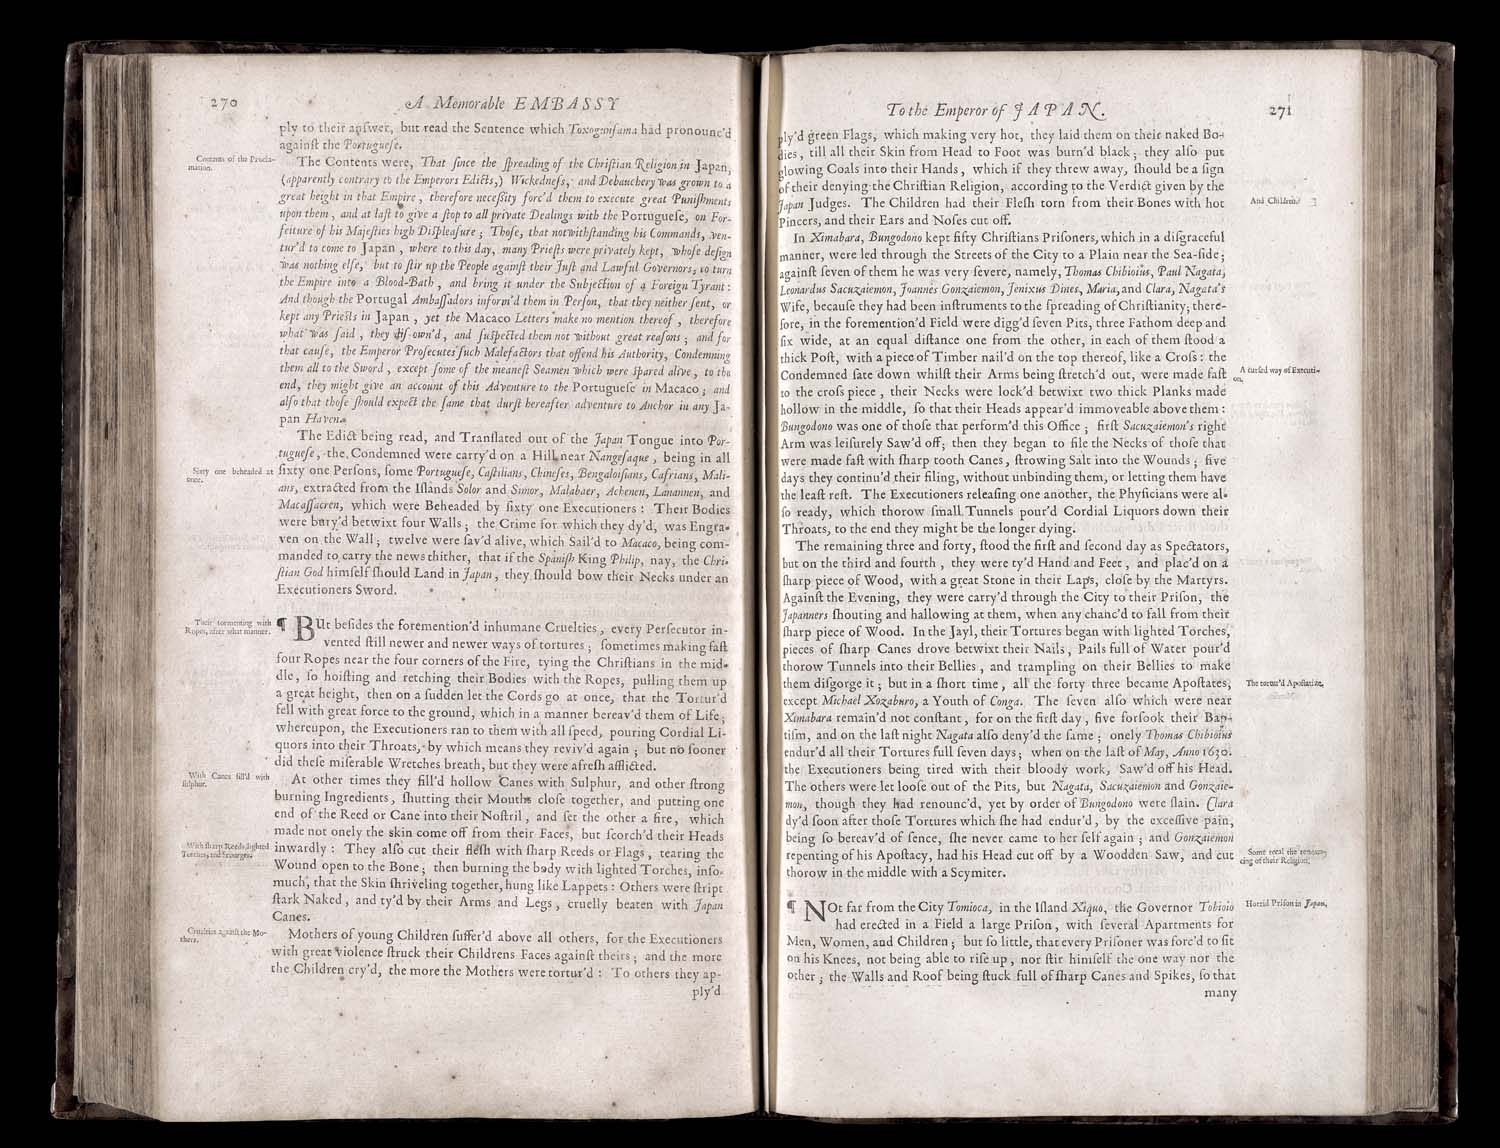 270
A Memorable EMBASSY
ply to their anſwer, but read the Sentence which Toxogunſama had pronounc'd
againſt the Portugueſe.
Contents of the Procla-
mation.
The Contents were, That ſince the ſpreading of the Chriſtian Religion in Japan,
(apparently contrary to the Emperors Edicts,) Wickedneſs, and Debauchery was grown to a
great height in that Empire, therefore neceſſity forc'd them to execute great Puniſhments
upon them, and at laſt to give a ſtop to all private Dealings with the Portugueſe, on For-
feiture of his Majeſties high Diſpleaſure; Thoſe, that notwithſtanding his Commands, ven-
tur'd to come to Japan, where to this day, many Prieſts were privately kept, whoſe deſign
was nothing elſe, but to ſtir up the People againſt their Juſt and Lawful Governors, to turn
the Empire into a Blood-Bath, and bring it under the Subjection of a Foreign Tyrant:
And though the Portugal Ambaſſadors inform'd them in Perſon, that they neither ſent, or
kept any Prieſts in Japan, yet the Macaco Letters make no mention thereof, therefore
what was ſaid, they diſ-own'd, and ſuſpected them not without great reaſons; and for
that cauſe, the Emperor Proſecutes ſuch Malefactors that offend his Authority, Condemning
them all to the Sword, except ſome of the meaneſt Seamen which were ſpared alive, to the
end, they might give an account of this Adventure to the Portugueſe in Macaco; and
alſo that thoſe ſhould expect the ſame that durſt hereafter adventure to Anchor in any Ja-
pan Haven.
The Edict being read, and Tranſlated out of the Japan Tongue into Por-
tugueſe, the Condemned were carry'd on a Hill near Nangeſaque, being in all
Sixty one beheaded at
once.
ſixty one Perſons, ſome Portugueſe, Caſtilians, Chineſes, Bengaloiſians, Cafrians, Mali-
ans, extracted from the Iſlands Solor and Simor, Malabaer, Achenen, Lanannen, and
Macaſſacren, which were Beheaded by ſixty one Executioners: Their Bodies
were bury'd betwixt four Walls; the Crime for which they dy'd, was Engra-
ven on the Wall; twelve were ſav'd alive, which Sail'd to Macaco, being com-
manded to carry the news thither, that if the Spaniſh King Philip, nay, the Chri-
ſtian God himſelf ſhould Land in Japan, they ſhould bow their Necks under an
Executioners Sword.
Their tormenting with
Ropes, after what manner.
¶ BUt beſides the foremention'd inhumane Cruelties, every Perſecutor in-
vented ſtill newer and newer ways of tortures; ſometimes making faſt
four Ropes near the four corners of the Fire, tying the Chriſtians in the mid-
dle, ſo hoiſting and retching their Bodies with the Ropes, pulling them up
a great height, then on a ſudden let the Cords go at once, that the Tortur'd
fell with great force to the ground, which in a manner bereav'd them of Life;
whereupon, the Executioners ran to them with all ſpeed, pouring Cordial Li-
quors into their Throats, by which means they reviv'd again; but no ſooner
did theſe miſerable Wretches breath, but they were afreſh afflicted.
With Canes fill'd with
ſulphur.
At other times they fill'd hollow Canes with Sulphur, and other ſtrong
burning Ingredients, ſhutting their Mouths cloſe together, and putting one
end of the Reed or Cane into their Noſtril, and ſet the other a fire, which
made not onely the skin come off from their Faces, but ſcorch'd their Heads
With ſharp Reeds, lighted
Torches, and Scourges.
inwardly: They alſo cut their fleſh with ſharp Reeds or Flags, tearing the
Wound open to the Bone; then burning the body with lighted Torches, inſo-
much, that the Skin ſhriveling together, hung like Lappets: Others were ſtript
ſtark Naked, and ty'd by their Arms and Legs, cruelly beaten with Japan
Canes.
Cruelties againſt the Mo-
thers.
Mothers of young Children ſuffer'd above all others, for the Executioners
with great violence ſtruck their Childrens Faces againſt theirs; and the more
the Children cry'd, the more the Mothers were tortur'd: To others they ap-
ply'd
To the Emperor of JAPAN.
271
ply'd green Flags, which making very hot, they laid them on their naked Bo-
dies, till all their Skin from Head to Foot was burn'd black; they alſo put
glowing Coals into their Hands, which if they threw away, ſhould be a ſign
of their denying the Chriſtian Religion, according to the Verdict given by the
Japan Judges. The Children had their Fleſh torn from their Bones with hot
And Children.
Pincers, and their Ears and Noſes cut off.
In Ximabara, Bungodono kept fifty Chriſtians Priſoners, which in a diſgraceful
manner, were led through the Streets of the City to a Plain near the Sea-ſide;
againſt ſeven of them he was very ſevere, namely, Thomas Chibioſus, Paul Nagata,
Leonardus Sacuzaiemon, Joannes Gonzaiemon, Jenixus Dines, Maria, and Clara, Nagata's
Wife, becauſe they had been inſtruments to the ſpreading of Chriſtianity; there-
fore, in the foremention'd Field were digg'd ſeven Pits, three Fathom deep and
ſix wide, at an equal diſtance one from the other, in each of them ſtood a
thick Poſt, with a piece of Timber nail'd on the top thereof, like a Croſs: the
Condemned ſate down whilſt their Arms being ſtretch'd out, were made faſt
A curſed way of Executi-
on.
to the croſs piece, their Necks were lock'd betwixt two thick Planks made
hollow in the middle, ſo that their Heads appear'd immoveable above them:
Bungodono was one of thoſe that perform'd this Office; firſt Sacuzaiemon's right
Arm was leiſurely Saw'd off; then they began to file the Necks of thoſe that
were made faſt with ſharp tooth Canes, ſtrowing Salt into the Wounds; five
days they continu'd their filing, without unbinding them, or letting them have
the leaſt reſt. The Executioners releaſing one another, the Phyſicians were al-
ſo ready, which thorow ſmall Tunnels pour'd Cordial Liquors down their
Throats, to the end they might be the longer dying.
The remaining three and forty, ſtood the firſt and ſecond day as Spectators,
but on the third and fourth, they were ty'd Hand and Feet, and plac'd on a
ſharp piece of Wood, with a great Stone in their Laps, cloſe by the Martyrs.
Againſt the Evening, they were carry'd through the City to their Priſon, the
Japanners ſhouting and hallowing at them, when any chanc'd to fall from their
ſharp piece of Wood. In the Jayl, their Tortures began with lighted Torches,
pieces of ſharp Canes drove betwixt their Nails, Pails full of Water pour'd
thorow Tunnels into their Bellies, and trampling on their Bellies to make
them diſgorge it; but in a ſhort time, all the forty three became Apoſtates,
The tortur'd Apoſtatize.
except Michael Xozaburo, a Youth of Conga. The ſeven alſo which were near
Ximabara remain'd not conſtant, for on the firſt day, five forſook their Bap-
tiſm, and on the laſt night Nagata alſo deny'd the ſame; onely Thomas Chibioſus
endur'd all their Tortures full ſeven days; when on the laſt of May, Anno 1630.
the Executioners being tired with their bloody work, Saw'd off his Head.
The others were let looſe out of the Pits, but Nagata, Sacuzaiemon and Gonzaie-
mon, though they had renounc'd, yet by order of Bungodono were ſlain. Clara
dy'd ſoon after thoſe Tortures which ſhe had endur'd, by the exceſſive pain,
being ſo bereav'd of ſence, ſhe never came to her ſelf again; and Gonzaiemon
repenting of his Apoſtacy, had his Head cut off by a Woodden Saw, and cut
Some recal the renoun-
cing of their Religion.
thorow in the middle with a Scymiter.
¶ NOt far from the City Tomioca, in the Iſland Xiquo, the Governor Tobioio
Horrid Priſon in Japan.
had erected in a Field a large Priſon, with ſeveral Apartments for
Men, Women, and Children; but ſo little, that every Priſoner was forc'd to ſit
on his Knees, not being able to riſe up, nor ſtir himſelf the one way nor the
other; the Walls and Roof being ſtuck full of ſharp Canes and Spikes, ſo that
many